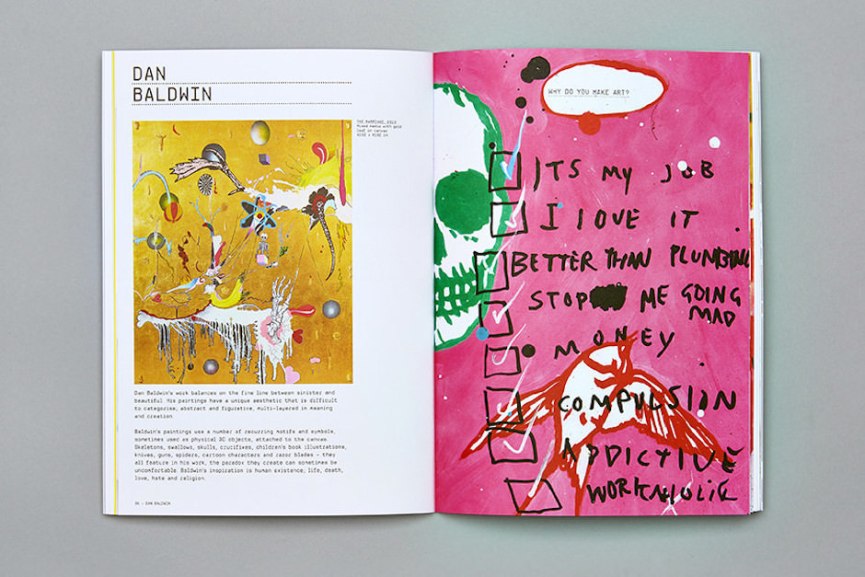 DAN
BALDWIN
Dan Baldwin's work balances on the fine line between sinister and
beautiful. His paintings have a unique aesthetic that is difficult
to categorise, abstract and figurative, multi-layered in meaning
and creation.
Baldwin's paintings use a number of recurring motifs and symbols,
sometimes used as physical 3D objects, attached to the canvas.
Skeletons, swallows, skulls, crucifixes, children's book illustrations,
knives, guns, spiders, cartoon characters and razor blades – they
all feature in his work, the paradox they create can sometimes be
uncomfortable. Baldwin's inspiration is human existence; life, death,
love, hate and religion.
– DAN BALDWIN
WHY DO YOU MAKE ART?
ITS MY JOB
I LOVE IT
BETTER THAN PLUMBING
STOP ME GOING
MAD
MONEY
COMPULSION
ADDICTIVE
WORKAHOLIC